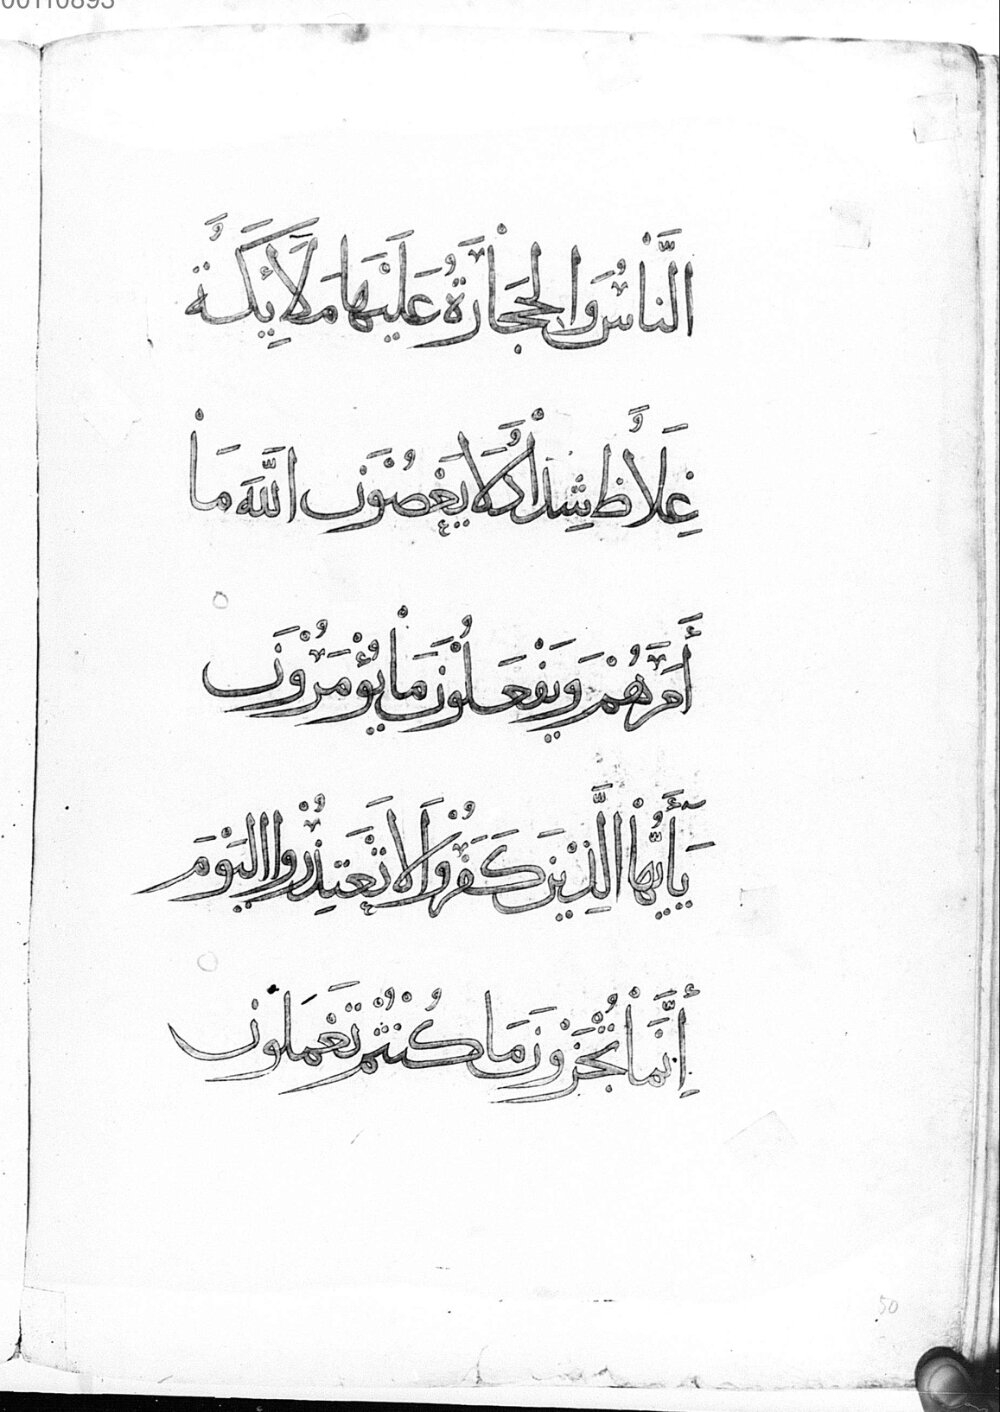 00110893
النَّاسُ وَالْحِجَارَةُ عَلَيْهَا مَلَائِكَةٌ
غِلَاظٌ شِدَادٌ لَا يَعْصُونَ اللَّهَ مَا
أَمَرَهُمْ وَيَفْعَلُونَ مَا يُؤْمَرُونَ
يَاأَيُّهَا الَّذِينَ كَفَرُوا لَا تَعْتَذِرُوا الْيَوْمَ
إِنَّمَا تُجْزَوْنَ مَا كُنْتُمْ تَعْمَلُونَ
50